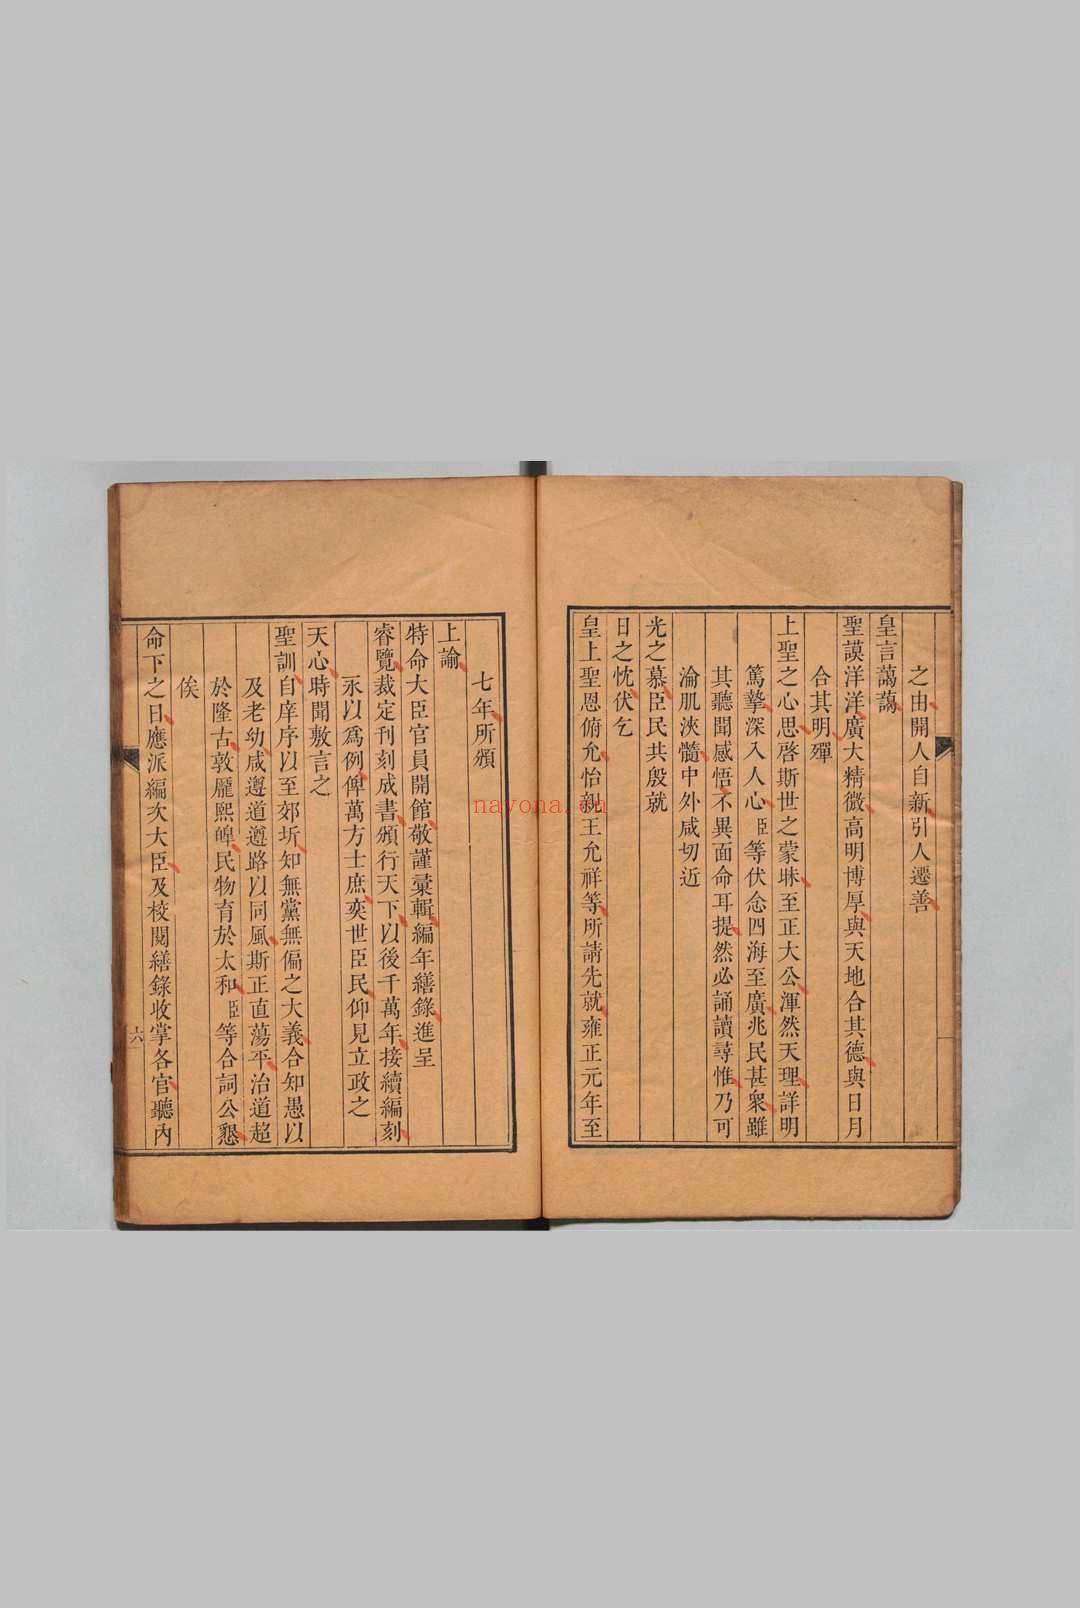 之由開人自新引人遷善
皇言藹藹
聖謨洋洋廣大精微高明博厚與天地合其德與日月
合其明殫
上聖之心思啓斯世之蒙昧至正大公渾然天理詳明
篤摯深入人心臣等伏念四海至廣兆民甚衆雖
其聽聞感悟不異面命耳提然必誦讀尋惟乃可
淪肌浹髓中外咸切近
光之慕臣民共殷就
日之忱伏乞
皇上聖恩俯允怡親王允祥等所請先就雍正元年至
七年所頒
上諭
特命大臣官員開館敬謹彙輯編年繕錄進呈
睿覽裁定刊刻成書頒行天下以後千萬年接續編刻
永以爲例俾萬方士庶奕世臣民仰見立政之
天心時聞敷言之
聖訓自庠序以至郊圻知無黨無偏之大義合知愚以
及老幼咸遵道遵路以同風斯正直蕩平治道超
於隆古敦龐熙皥民物育於太和臣等合詞公懇
俟
命下之日應派編次大臣及校閱繕錄收掌各官聽內
六
nayona.cn